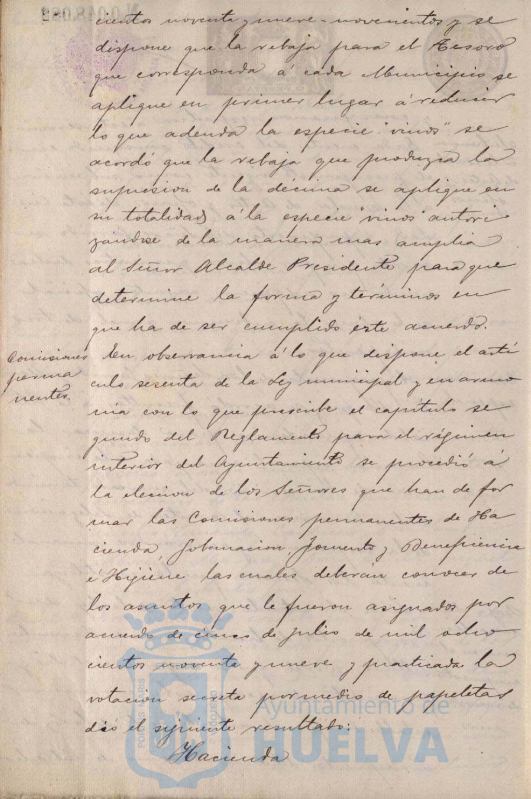 N.0.048.082
cientos noventa y nueve-novecientos y se
dispone que la rebaja para el Tesoro
que corresponda á cada Municipio se
aplique en primer lugar á reducir
lo que adeuda la especie "vinos" se
acordó que la rebaja que produzca la
supresion de la décima se aplique en
su totalidad á la especie "vinos" autori
zandose de la manera mas amplia
al Señor Alcalde Presidente para que
determine la forma y términos en
que ha de ser cumplido este acuerdo.
Comisiones
perma
nentes.
En observancia á lo que dispone el artí
culo sesenta de la Ley municipal y en armo
nia con lo que prescribe el capitulo se
gundo del Reglamento para el régimen
interior del Ayuntamiento se procedió á
la eleccion de los Señores que han de for
mar las Comisiones permanentes de Ha
cienda, Gobernacion, Fomento y Beneficencia
é Higiene, las cuales deberán conocer de
los asuntos que le fueron asignados por
acuerdo de cinco de julio de mil ocho
cientos noventa y nueve, y practicada la
votación secreta por medio de papeletas
dió el siguiente resultado:
Hacienda
Ayuntamiento de
HUELVA